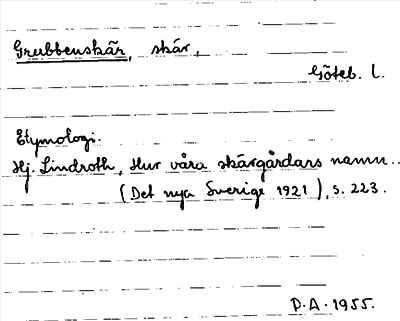 Grubbenskär, skär,
Göteb. l.
Etymologi.
Hj. Lindroth, Hur våra skärgårdars namn...
(Det nya Sverige 1921), s. 223.
P.A. 1955.